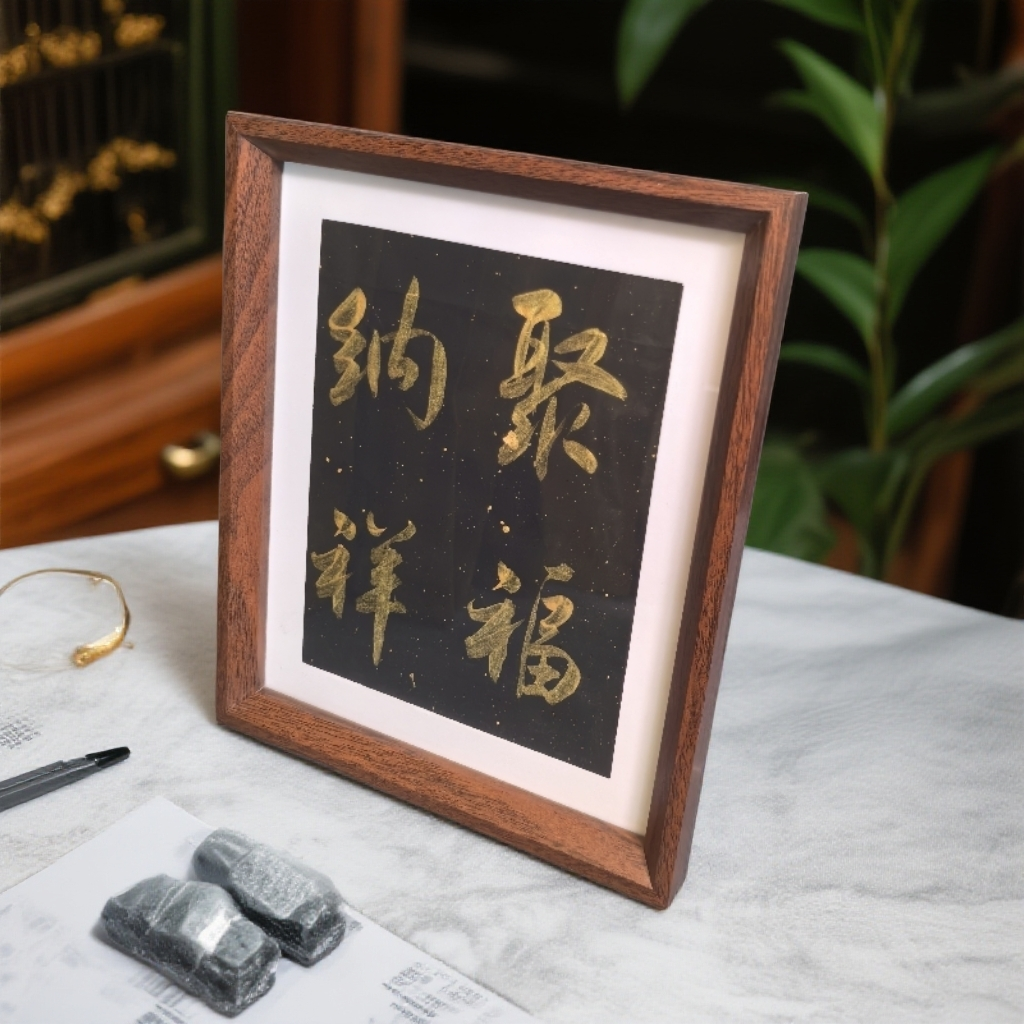 聚福
纳祥